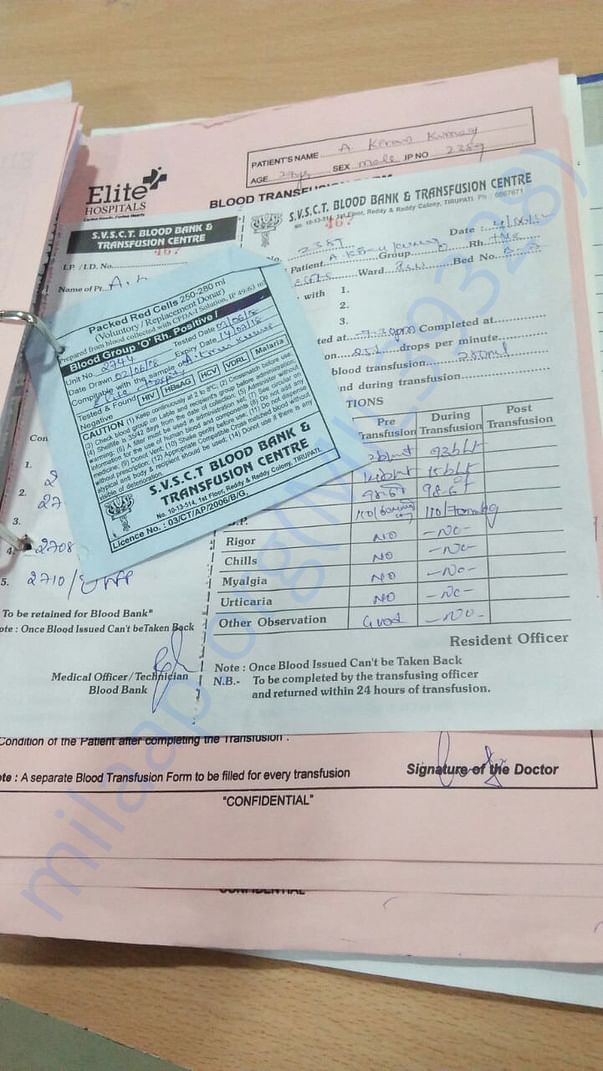 PATIENT'S NAME A. Kiran Kumar
AGE SEX male IP NO 2389
Elite
HOSPITALS
BLOOD TRANSFUSION FORM
S.V.S.C.T. BLOOD BANK &
TRANSFUSION CENTRE
467
I.P. / I.D. No.
Name of Pt. A.
Con
1. 2
2. 27
3.
4. 2708
5. 2710/
To be retained for Blood Bank"
ote : Once Blood Issued Can't be Taken Back
Medical Officer / Technician
Blood Bank
Packed Red Cells 250-280 ml
(Voluntary / Replacement Donar)
Prepared from blood collected with CPDA-1 Solution, IP 49/63 ml
Blood Group 'O' Rh. Positive /
Unit No. 2744 Tested Date
Date Drawn Expiry Date
Compatible with the sample of
Tested & Found HIV HBsAG HCV VDRL Malaria
Negative
CAUTION (1) Keep continuously at 2 to 6°C. (2) Crossmatch before use.
(3) Check blood group on Lable and recipients group before administration.
(4) Shelflife is 35/42 days from the date of collection. (5) Administer without
warming. (6) A filter must be used in administration set. (7) See circular on
information for the use of human blood and components (8) Do not add any
medicine. (9) Donut Vent. (10) Shake gently before use. (11) Do not dispense
without prescription. (12) Appropriate Compatible Cross matched blood without
atypical and body & recipient should be used. (14) Donot use if there is any
visible of deterioration.
S.V.S.C.T BLOOD BANK &
TRANSFUSION CENTRE
No. 10-13-514, 1st Floor, Reddy & Reddy Colony, TIRUPATI.
Licence No. : 03/CT/AP/2006/B/G,
S.V.S.C.T. BLOOD BANK & TRANSFUSION CENTRE
No. 10-13-514, 1st Floor, Reddy & Reddy Colony, TIRUPATI. Ph : 6667671
467
2389 Date :
Patient A. Kiran Kumar Group Rh +Ve
Ward Bed No.
with 1.
2.
3.
ted at 7.30pm Completed at
on 25 drops per minute
blood transfusion
nd during transfusion
TIONS
Pre Transfusion During Transfusion Post Transfusion
98.6F 98.6F
110/70mmHg
Rigor NO -No-
Chills NO -No-
Myalgia NO -No-
Urticaria NO -No-
Other Observation Good -No-
Resident Officer
Note : Once Blood Issued Can't be Taken Back
N.B.- To be completed by the transfusing officer
and returned within 24 hours of transfusion.
Condition of the Patient after completing the Transfusion :
ote : A separate Blood Transfusion Form to be filled for every transfusion Signature of the Doctor
"CONFIDENTIAL"
CONFIDENTIAL